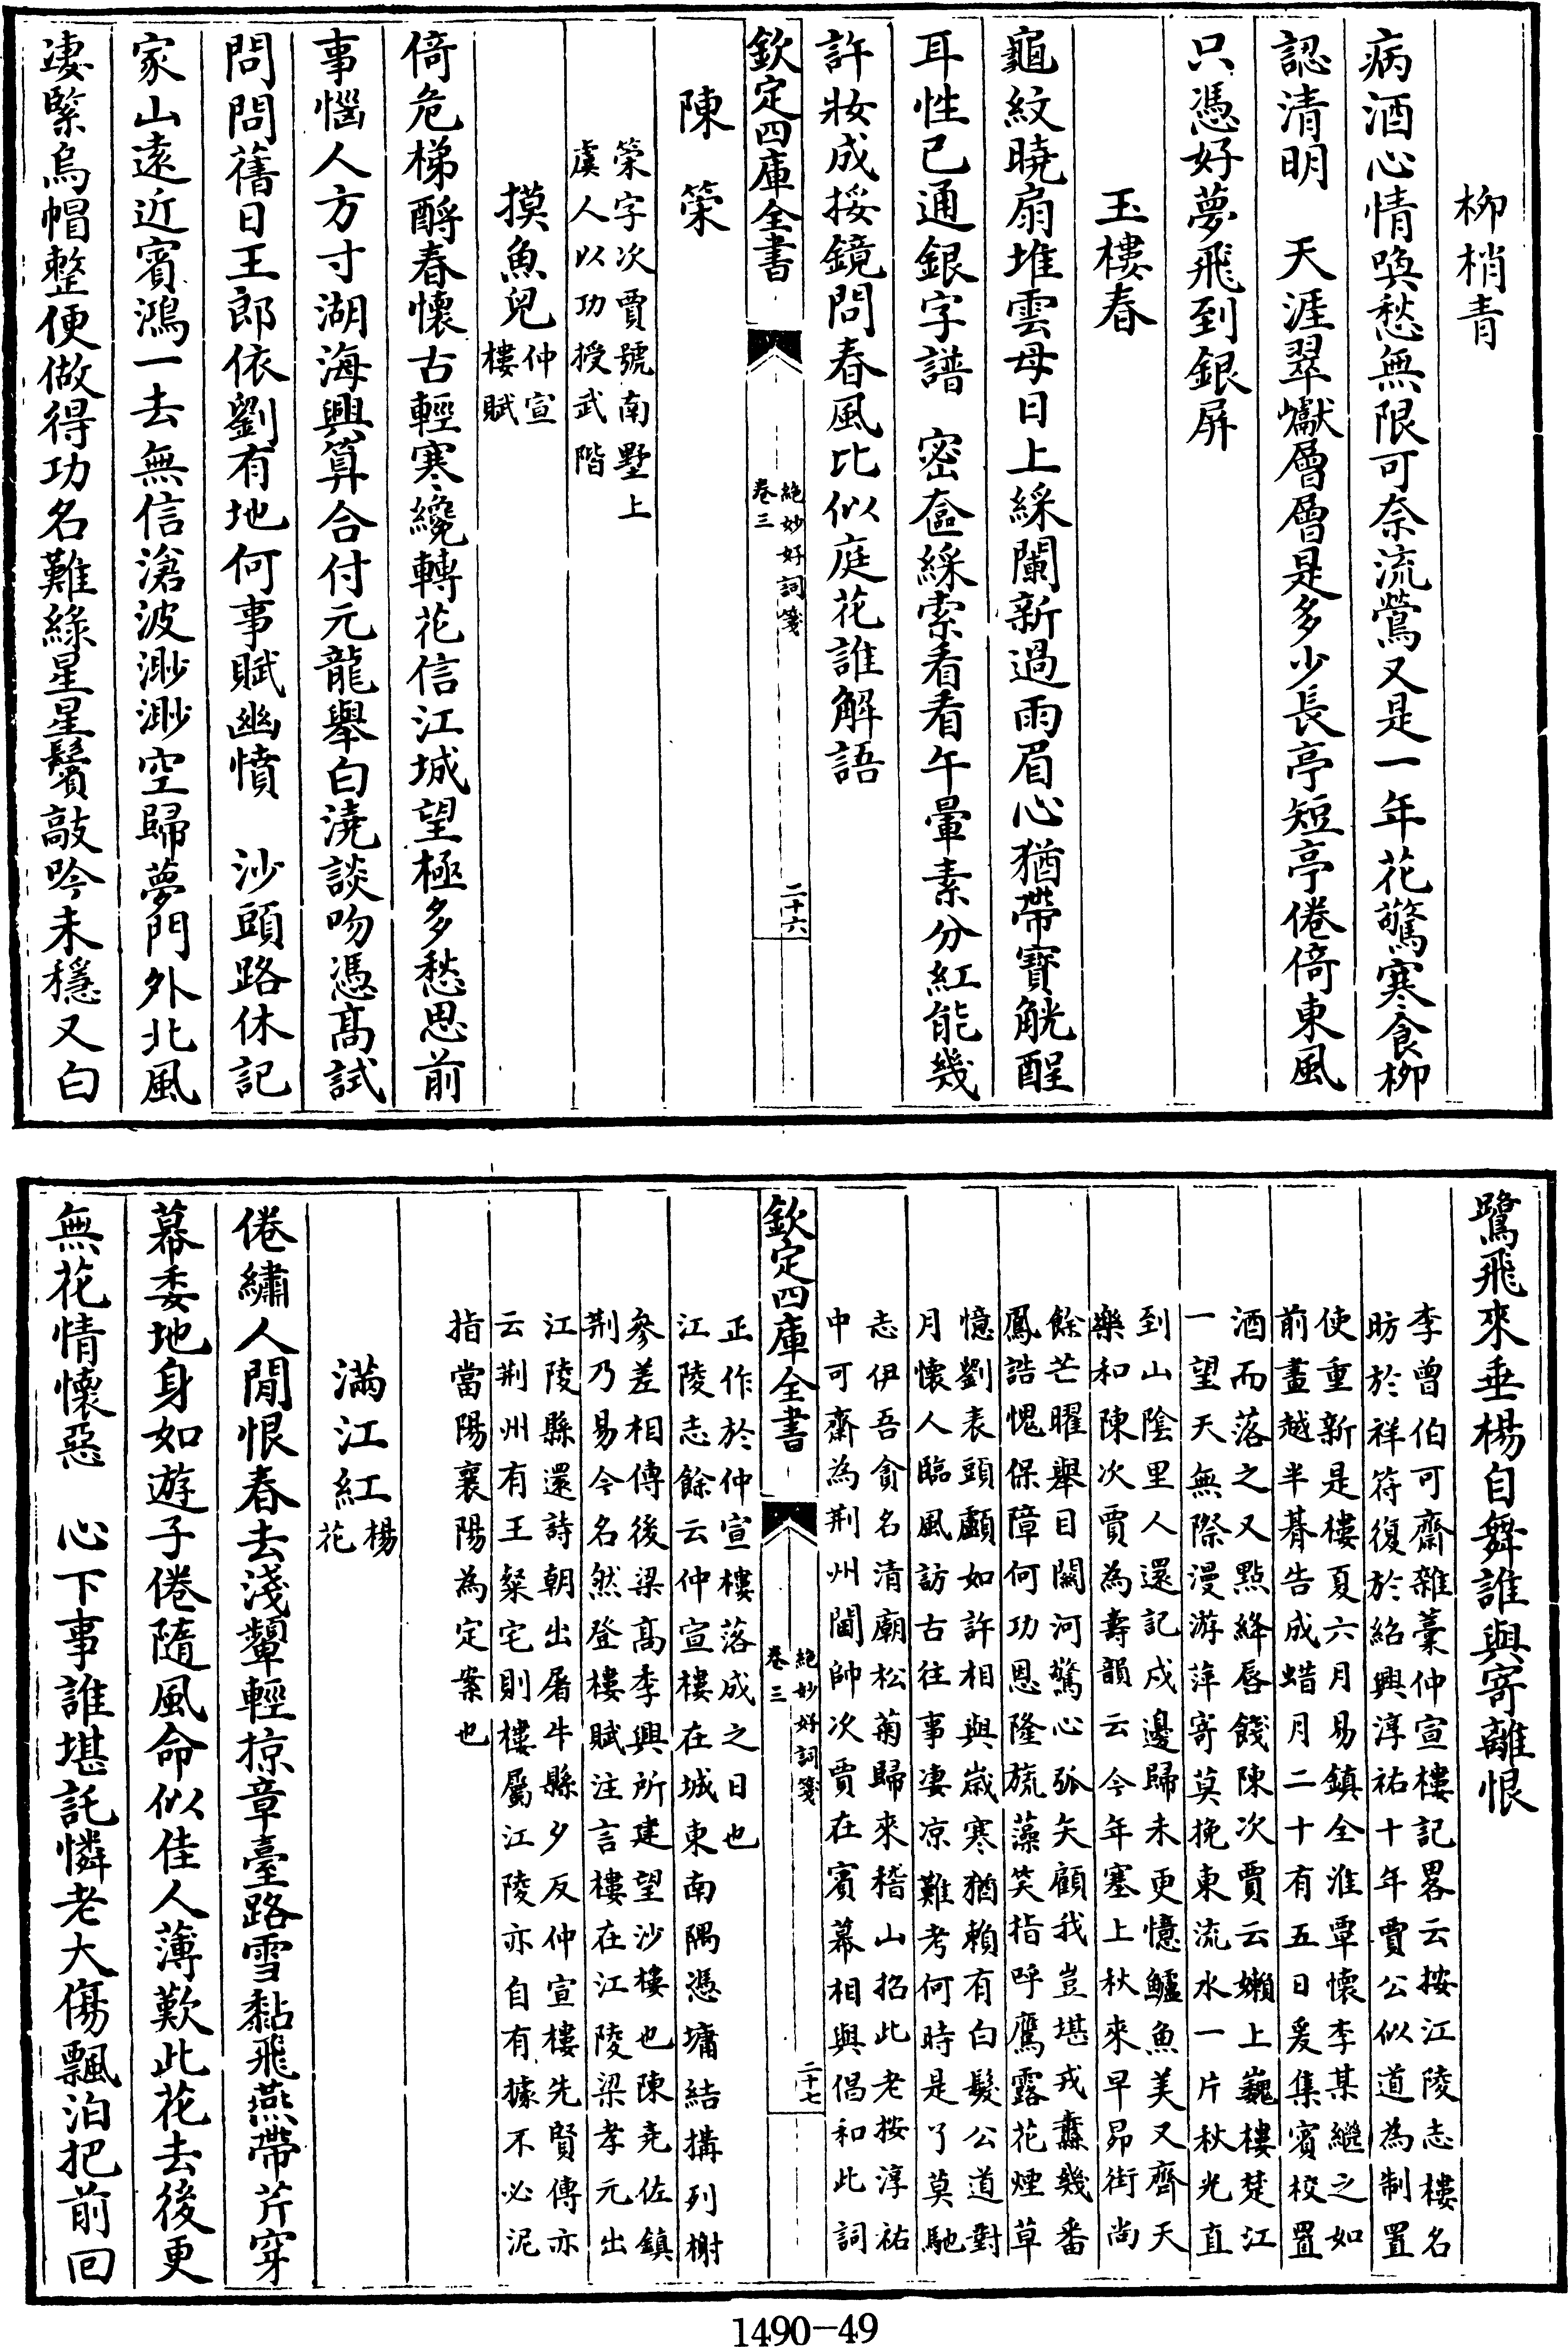 柳梢青
病酒心情喚愁無限可奈流鶯又是一年花驚寒食柳
認清明　天涯翠巘層層是多少長亭短亭倦倚東風
只憑好夢飛到銀屏
玉樓春
龜紋曉扇堆雲母日上綵闌新過雨眉心猶帶寶觥酲
耳性已通銀字譜　密奩綵索看看午暈素分紅能幾
許妝成挼鏡問春風比似庭花誰解語
欽定四庫全書
絶妙好詞箋
卷三
二十六
陳策
策字次賈號南墅上
虞人以功授武階
摸魚兒仲宣
樓賦
倚危梯酹春懷古輕寒纔轉花信江城望極多愁思前
事惱人方寸湖海興算合付元龍舉白澆談吻憑高試
問問舊日王郎依劉有地何事賦幽憤　沙頭路休記
家山遠近賓鴻一去無信滄波渺渺空歸夢門外北風
凄緊烏帽整便做得功名難綠星星鬢敲吟未穩又白
鷺飛來垂楊自舞誰與寄離恨
李曾伯可齋雜藁仲宣樓記畧云按江陵志樓名
昉於祥符復於紹興淳祐十年賈公似道為制置
使重新是樓夏六月易鎮全淮覃懷李某繼之如
前畫越半朞告成蜡月二十有五日爰集賓校置
酒而落之又點絳唇餞陳次賈云嬾上巍樓楚江
一望天無際漫游萍寄莫挽東流水一片秋光直
到山陰里人還記戍邊歸未更憶鱸魚美又齊天
樂和陳次賈為壽韻云今年塞上秋來早昴街尚
餘芒曜舉目關河驚心弧矢顧我豈堪戎纛幾番
鳳誥愧保障何功恩隆旒藻笑指呼鷹露花煙草
憶劉表頭顱如許相與歲寒猶賴有白髮公道對
月懷人臨風訪古往事凄凉難考何時是了莫馳
志伊吾貪名清廟松菊歸來稽山招此老按淳祐
中可齋為荆州閫帥次賈在賓幕相與倡和此詞
欽定四庫全書
絶妙好詞箋
卷三
二十七
正作於仲宣樓落成之日也
江陵志餘云仲宣樓在城東南隅憑墉結搆列榭
參差相傳後梁高季興所建望沙樓也陳堯佐鎮
荆乃易今名然登樓賦注言樓在江陵梁孝元出
江陵縣還詩朝出屠牛縣夕反仲宣樓先賢傳亦
云荆州有王粲宅則樓屬江陵亦自有據不必泥
指當陽襄陽為定案也
滿江紅楊
花
倦繡人閒恨春去淺顰輕掠章臺路雪黏飛燕帶芹穿
幕委地身如遊子倦隨風命似佳人薄歎此花去後更
無花情懷惡　心下事誰堪託憐老大傷飄泊把前回
1490-49